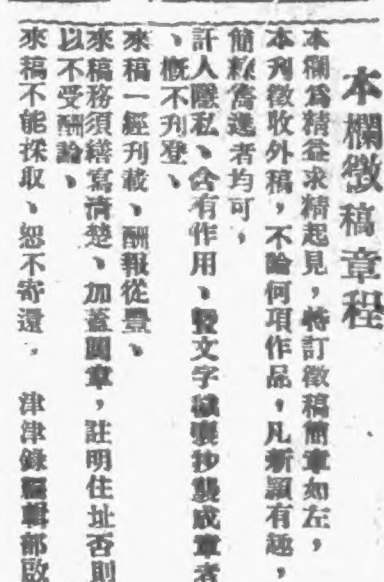 本欄徵稿章程
本欄爲精益求精起見，特訂徵稿簡章如左，
本刋徵收外稿，不論何項作品，凡新穎有趣，
簡練 者均可，
訐人隱私、含有作用、 文字 抄襲成章者
、概不刋登、
來稿一經刋載、酬報從豐、
來稿務須繕寫清楚、加蓋圖章，註明住址否則
以不受酬論、
來稿不能採取、恕不寄還。　津津錄編輯部啟